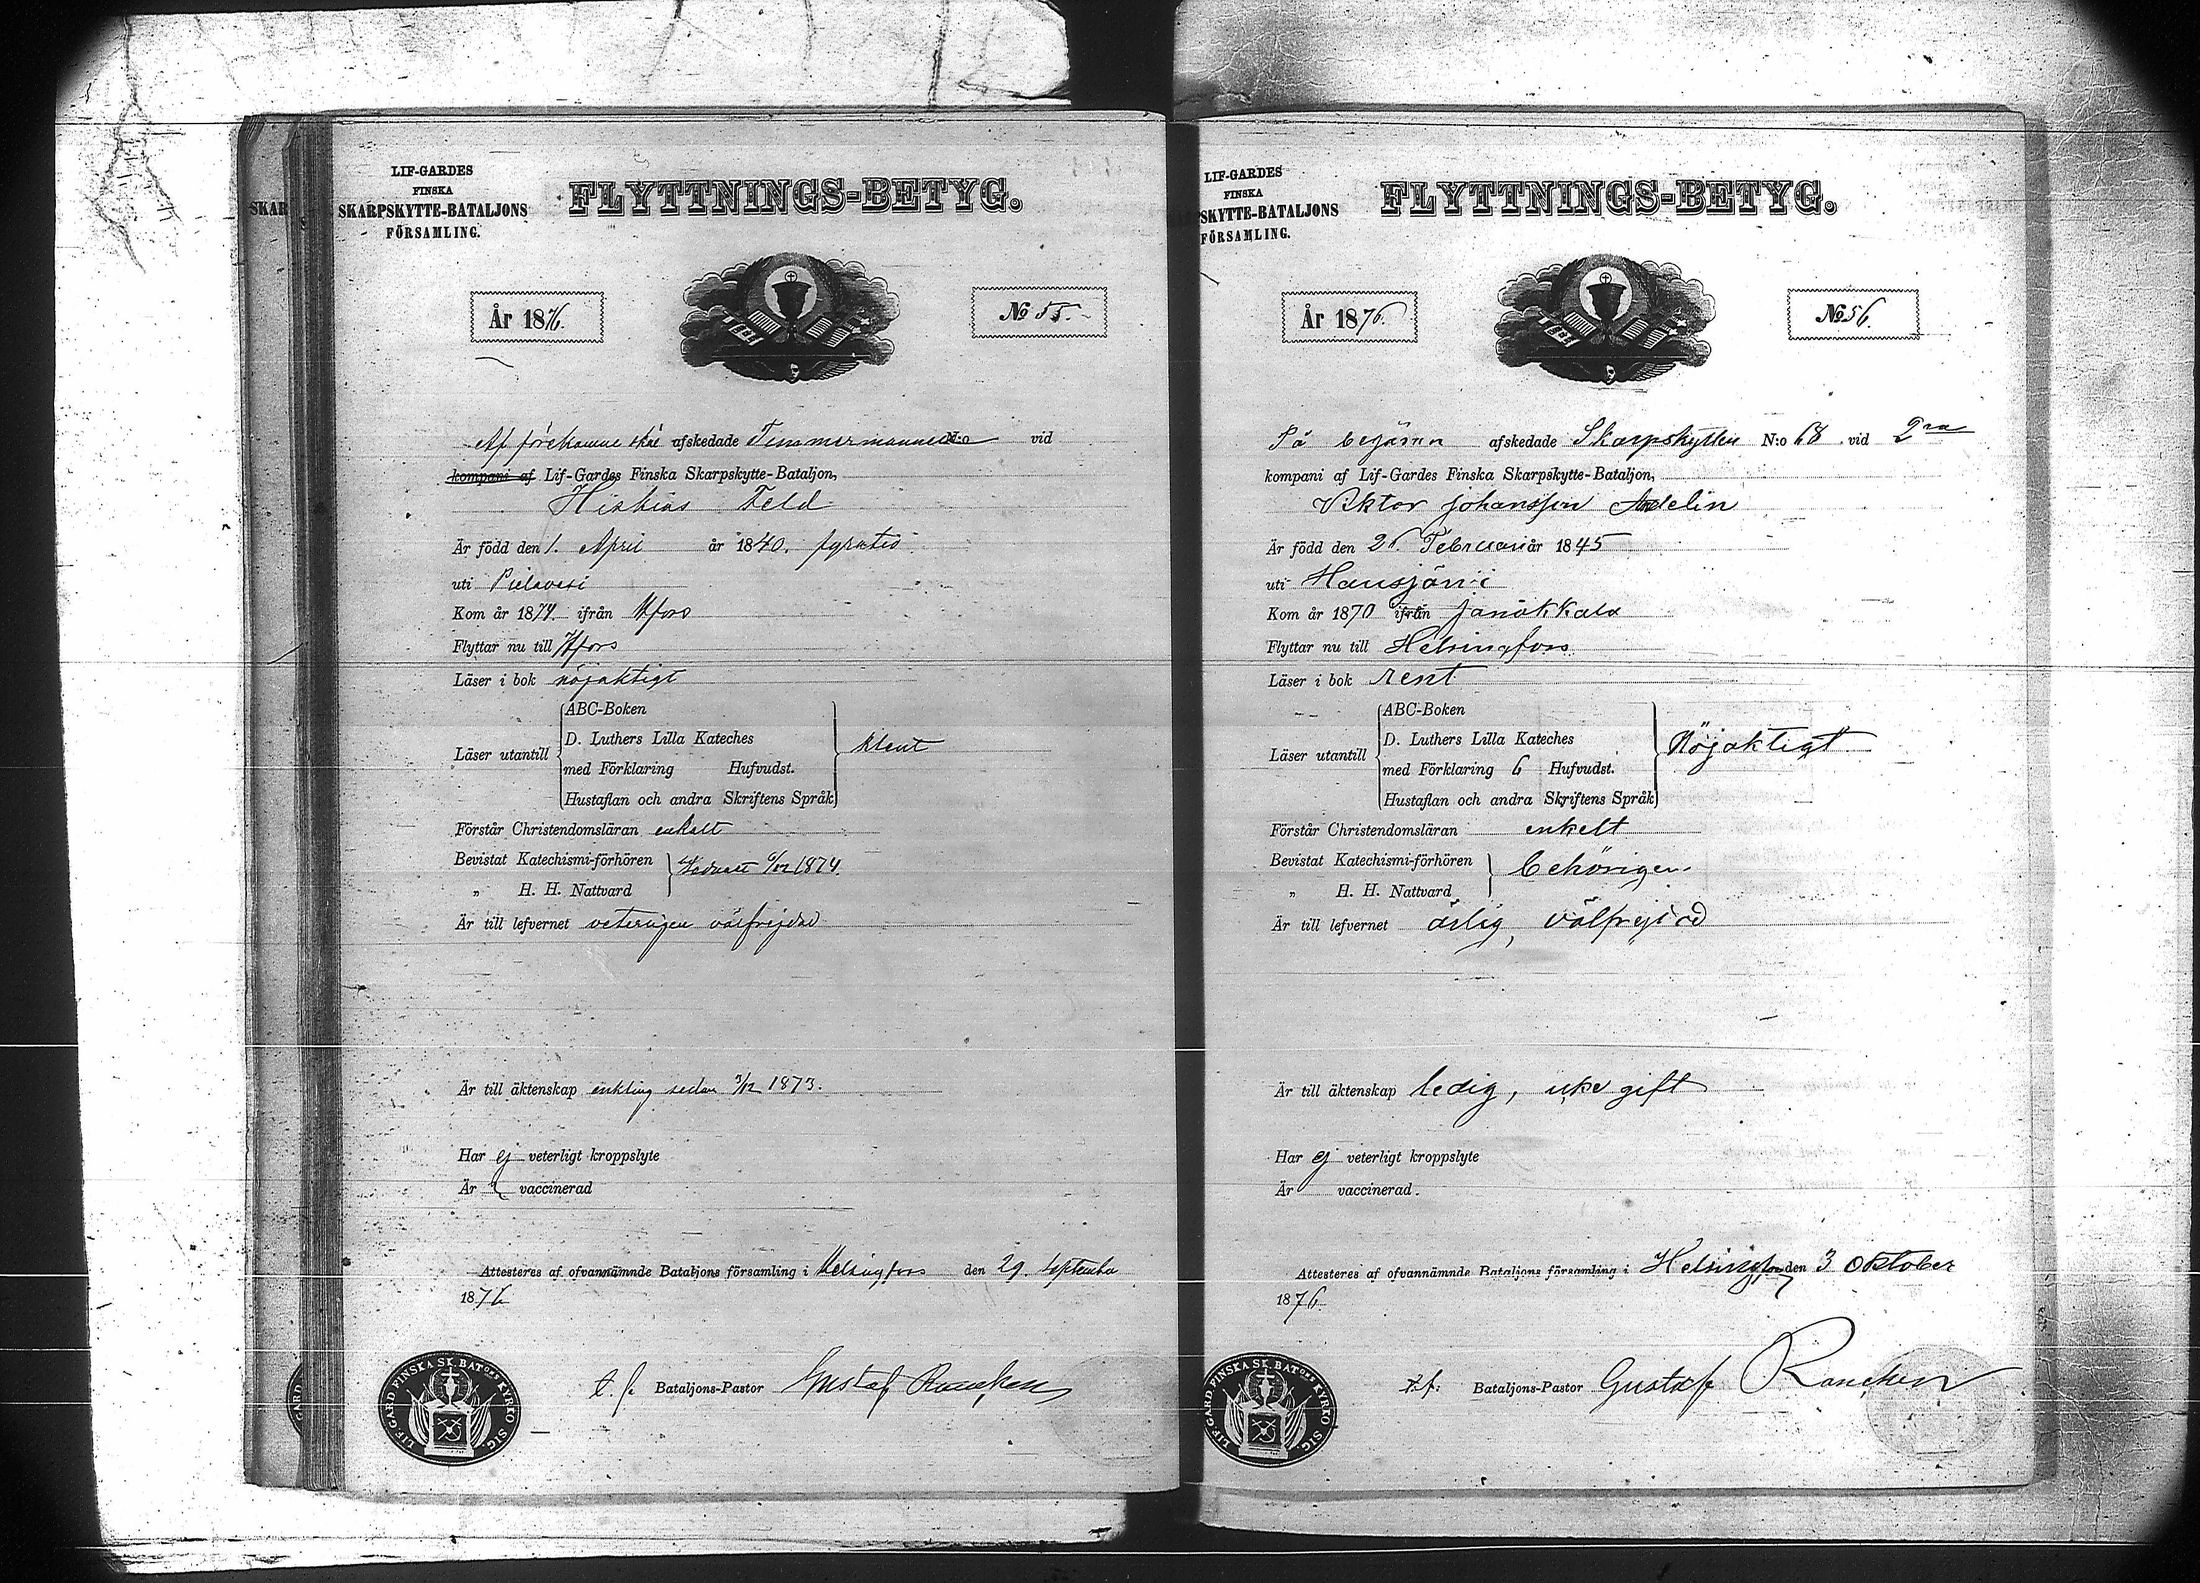 SKAR
LIF-GARDES
FINSKA
SKARPSKYTTE-BATALJONS
FÖRSAMLING.
FLYTTNINGS-BETYG.
År 1876.
No 55.
Af förekomne skäl afskedade Timmermannen N:o vid
kompani af Lif-Gardes Finska Skarpskytte-Bataljon,
Hiskias Feld
Är född den 1. April år 1840.
uti Pielavesi
Kom år 1874. ifrån Hfors
Flyttar nu till Hfors
Läser i bok nöjaktigt
ABC-Boken
D. Luthers Lilla Kateches
Läser utantill
med Förklaring Hufvudst.
Hustaflan och andra Skriftens Språk
Förstår Christendomsläran enkelt
Bevistat Katechismi-förhören
" H. H. Nattvard
1874.
Är till lefvernet veterligen välfrejdad
Är till äktenskap enkling sedan 3/12 1873.
Har ej veterligt kroppslyte
Är vaccinerad
Attesteres af ofvannämnde Bataljons församling i Helsingfors den 29. September
1876
t. f. Bataljons-Pastor Gustaf Rancken
LIF. GARD. FINSKA SK. BAT:ONS KYRKO SIG.
LIF-GARDES
FINSKA
SKYTTE-BATALJONS
FÖRSAMLING.
FLYTTNINGS-BETYG.
År 1876.
No 56.
På begäran afskedade Skarpskytten N:o 68 vid 2ra
kompani af Lif-Gardes Finska Skarpskytte-Bataljon,
Viktor Johansson Adelin
Är född den Februari år 1845
uti Hausjärvi
Kom år 1870 ifrån Janakkala
Flyttar nu till Helsingfors
Läser i bok rent
ABC-Boken
D. Luthers Lilla Kateches
Läser utantill
med Förklaring 6 Hufvudst.
Hustaflan och andra Skriftens Språk
Nöjaktigt
Förstår Christendomsläran enkelt
Bevistat Katechismi-förhören
" H. H. Nattvard
behörigen.
Är till lefvernet ärlig, välfrejdad
Är till äktenskap ledig, icke gift
Har ej veterligt kroppslyte
Är vaccinerad.
Attesteres af ofvannämnde Bataljons församling i Helsingfors den 3 Oktober
1876.
t.f. Bataljons-Pastor Gustaf Rancken
LIF. GARD. FINSKA SK. BAT:ONS KYRKO SIG.